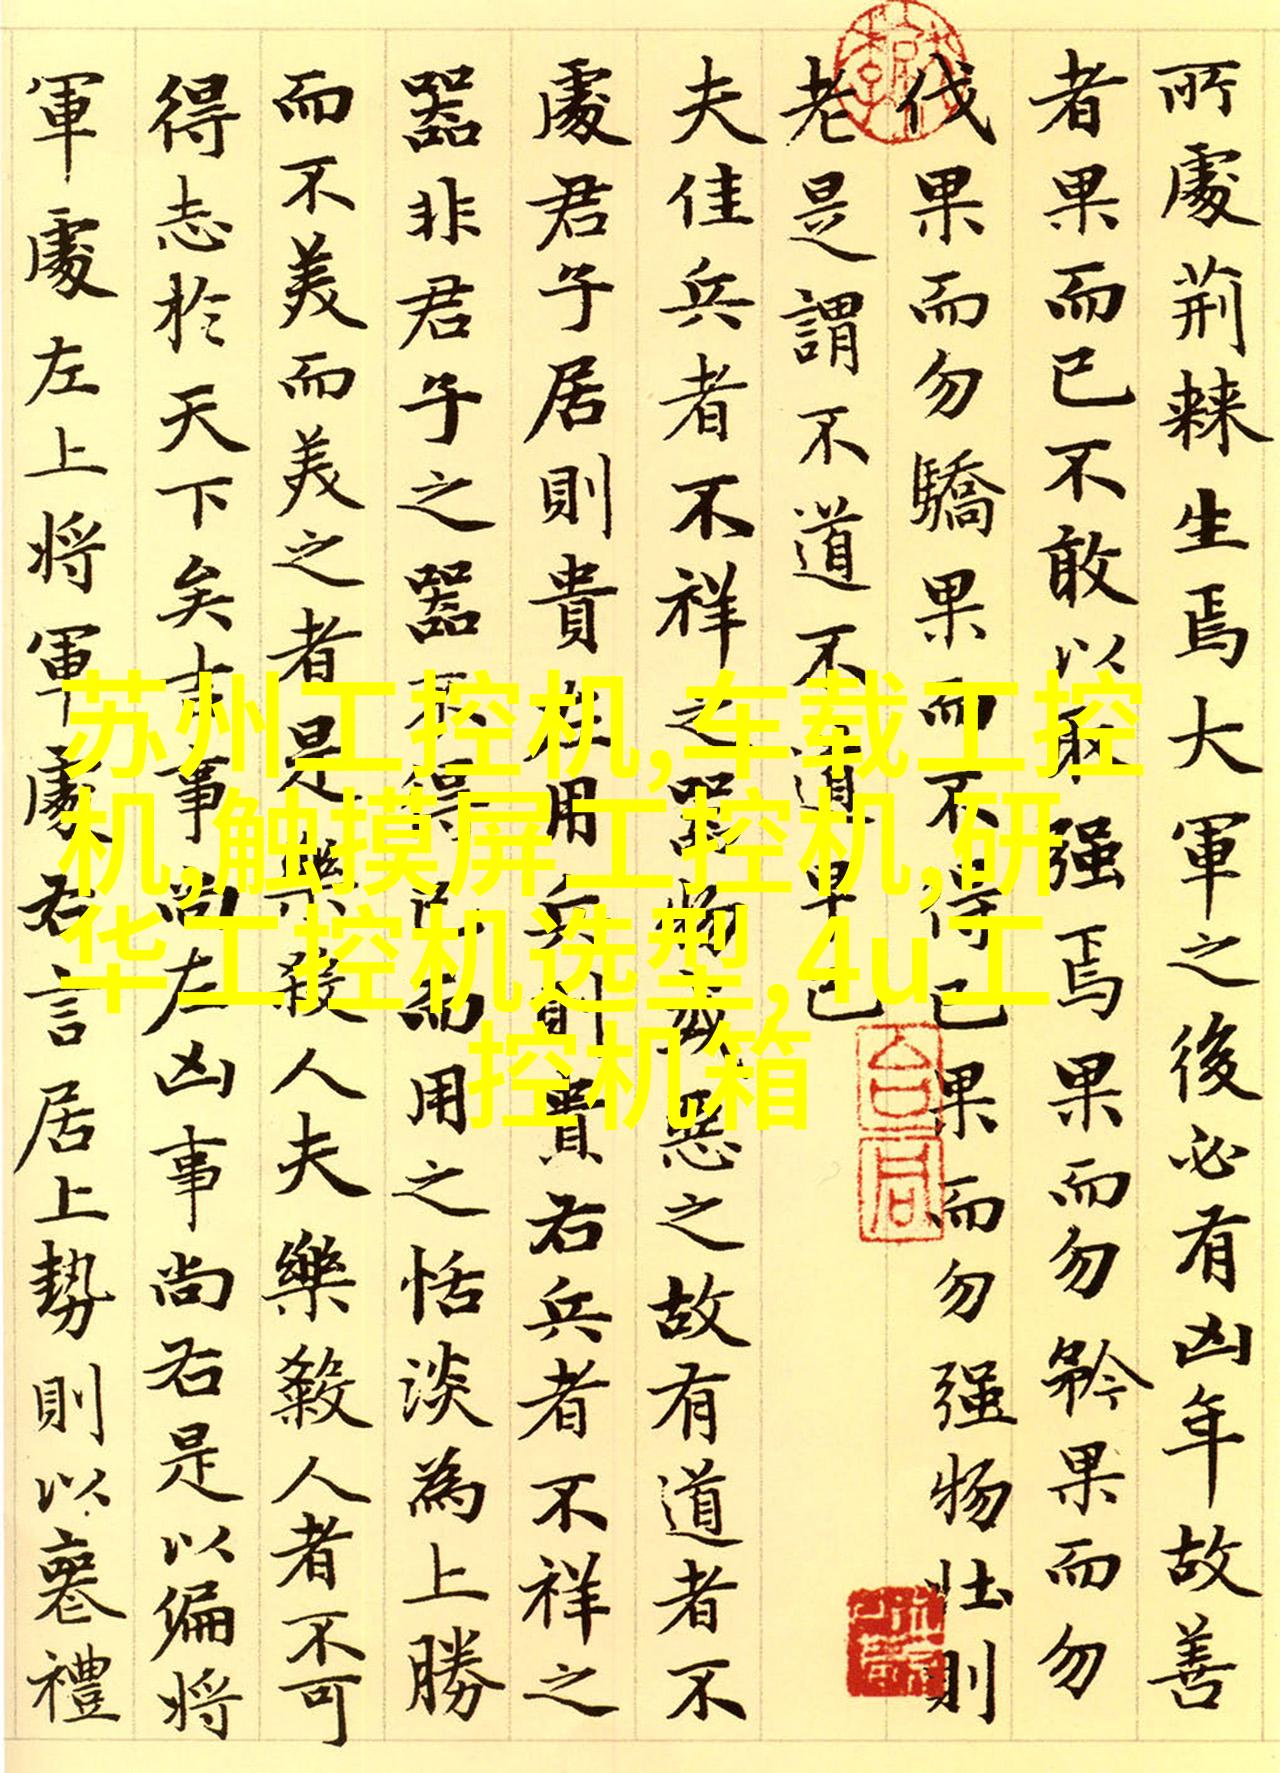 所處荊棘生焉大軍之後必有凶年故善
者果而已不敢以取强焉果而勿矜果而勿
伐果而勿驕果而不得已果而勿强物壮則
老是謂不道不道早已
夫佳兵者不祥之器物或惡之故有道者不
處君子居則貴左用兵則貴右兵者不祥之
器非君子之器不得已而用之恬淡為上勝
而不美而美之者是樂殺人夫樂殺人者不可
得志於天下矣吉事尚左凶事尚右是以偏将
軍處左上将軍處右言居上勢則以喪禮
苏州工控机,车载工控
机,触摸屏工控机,研
华工控机选型,4u工
控机箱